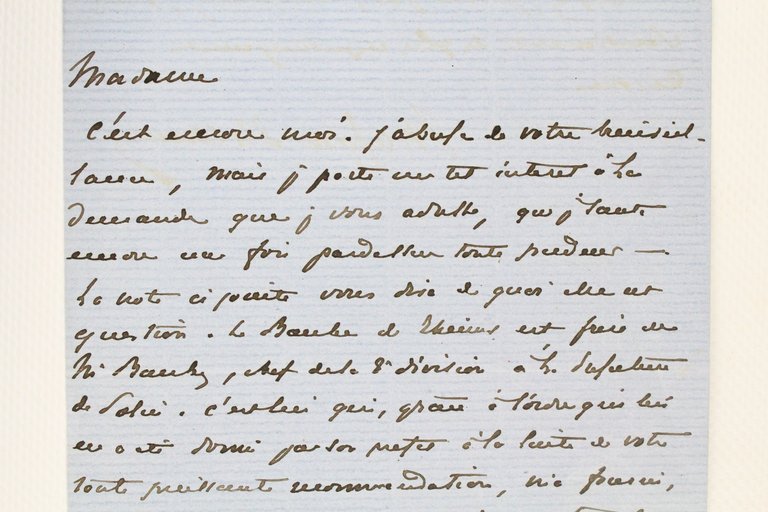 Madame
c'est encore moi. j'abuse de votre bienveil-
lance, mais j porte un tel interet à la
demande que j vous adresse, que j saute
encore une fois pardessus toute pudeur —
La note ci jointe vous dira de quoi elle est
question. Le Bauche de Rheims est frère de
Mr Bauche, chef de la 2e division à la Préfecture
de Police. c'est lui qui, grace à l'ordre qui lui
en a été donné par son prefet à la suite de votre
toute puissante recommendation, m'a fourni,